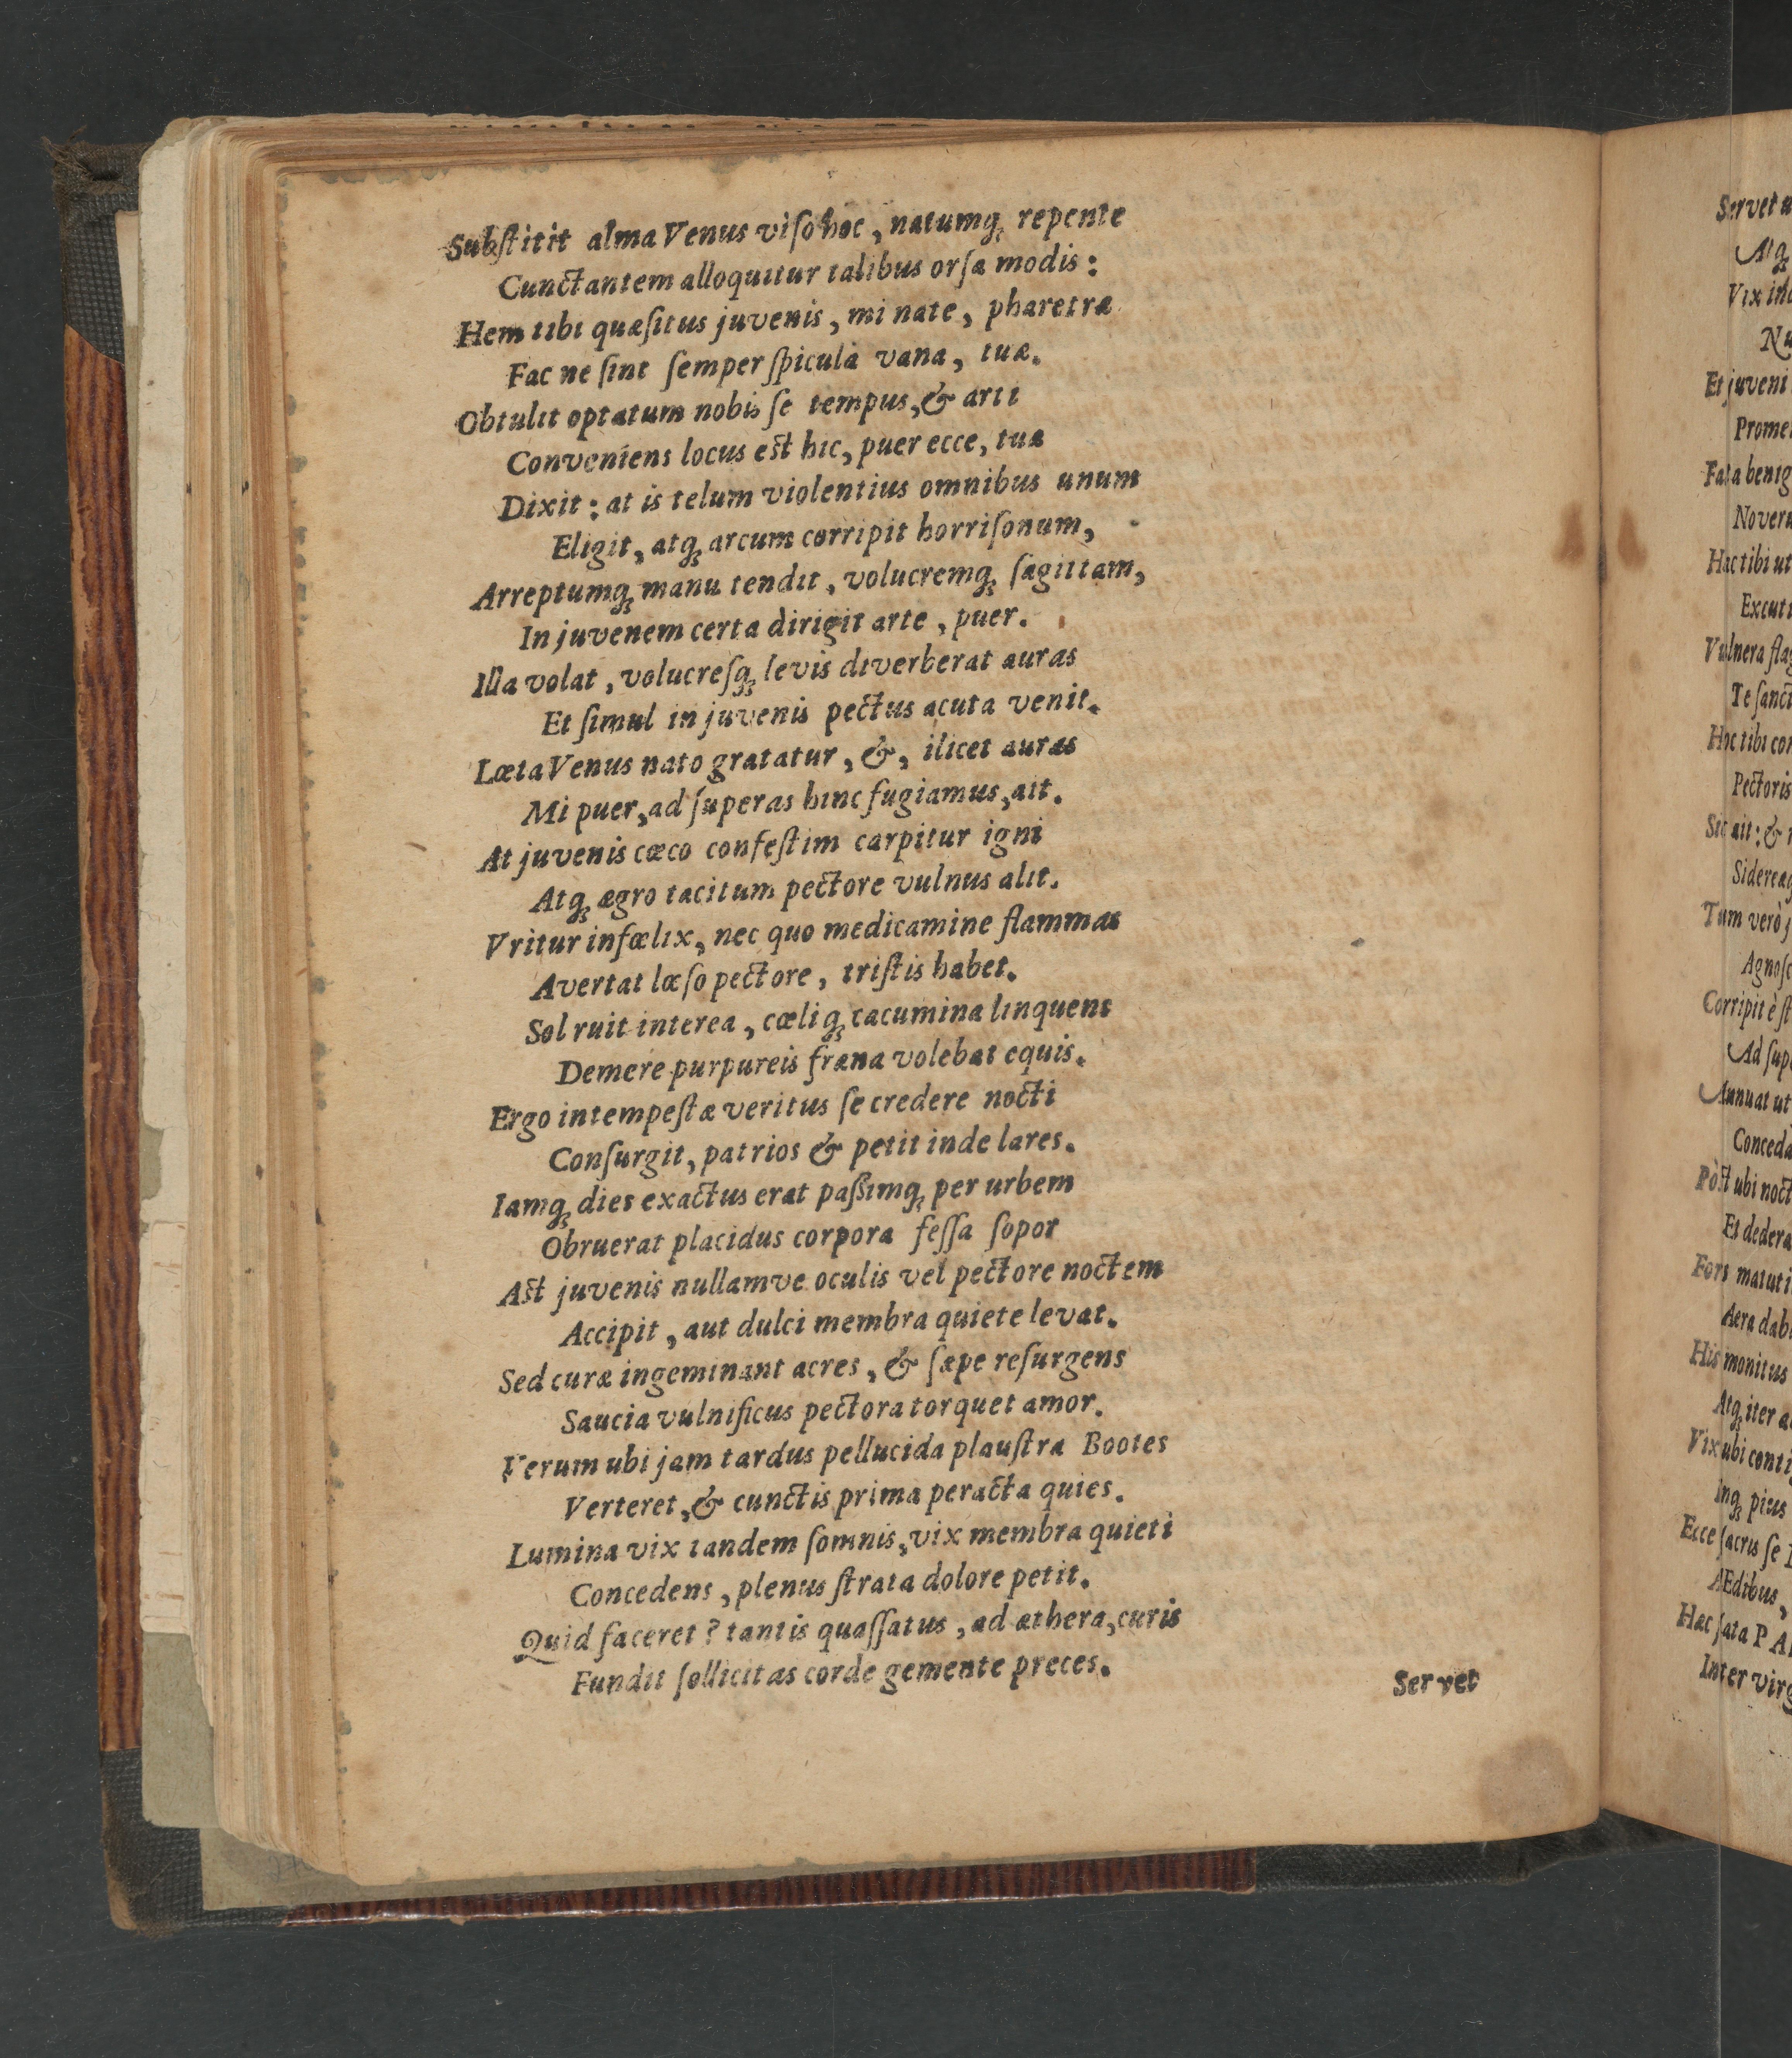 Subſtitit alma Venus viſo hoc, natumq́; repente
Cunctantem alloquitur talibus orſa modis:
Hem tibi quæſitus juvenis, mi nate, pharetræ
Fac ne ſint ſemper ſpicula vana, tuæ.
Obtulit optatum nobis ſe tempus, & arti
Conveniens locus est hic, puer ecce, tuæ
Dixit: at is telum violentius omnibus unum
Eligit, atq; arcum corripit horriſonum,
Arreptumq; manu tendit, volucremq; ſagittam,
In juvenem certa dirigit arte, puer.
Illa volat, volucreſq; levis diverberat auras
Et ſimul in juvenis pectus acuta venit.
Lœta Venus nato gratatur, &, ilicet auras
Mi puer, ad ſuperas hinc fugiamus, ait.
At juvenis cœco confeſtim carpitur igni
Atq; ægro tacitum pectore vulnus alit.
Vritur infœlix, nec quo medicamine flammas
Avertat lœſo pectore, triſtis habet.
Sol ruit interea, cœliq; cacumina linquens
Demere purpureis fræna volebat equis.
Ergo intempeſtæ veritus ſe credere nocti
Conſurgit, patrios & petit inde lares.
Iamq; dies exactus erat paßimq; per urbem
Obruerat placidus corpora feſſa ſopor
Ast juvenis nullamve oculis vel pectore noctem
Accipit, aut dulci membra quiete levat.
Sed curæ ingeminant acres, & ſæpe reſurgens
Saucia vulnificus pectora torquet amor.
Verum ubi jam tardus pellucida plauſtra Bootes
Verteret, & cunctis prima peracta quies.
Lumina vix tandem ſomnis, vix membra quieti
Concedens, plenus ſtrata dolore petit.
Quid faceret? tantis quaſſatus, ad æthera, curis
Fundit ſollicitas corde gemente preces.
Servet
Servet
Atq;
Vix
Et juveni
Hac tibi ut
Vulnera
Te
Hoc tibi
Pectoris
Sic ait: &
Tum verò
Corripit è
Ad
Annuat ut
Pòst ubi
Et
Fors
His monitus
Atq; iter
Vix ubi
Inq; pius
Ecce ſacris ſe
AEdibus,
Hac ſata
Inter